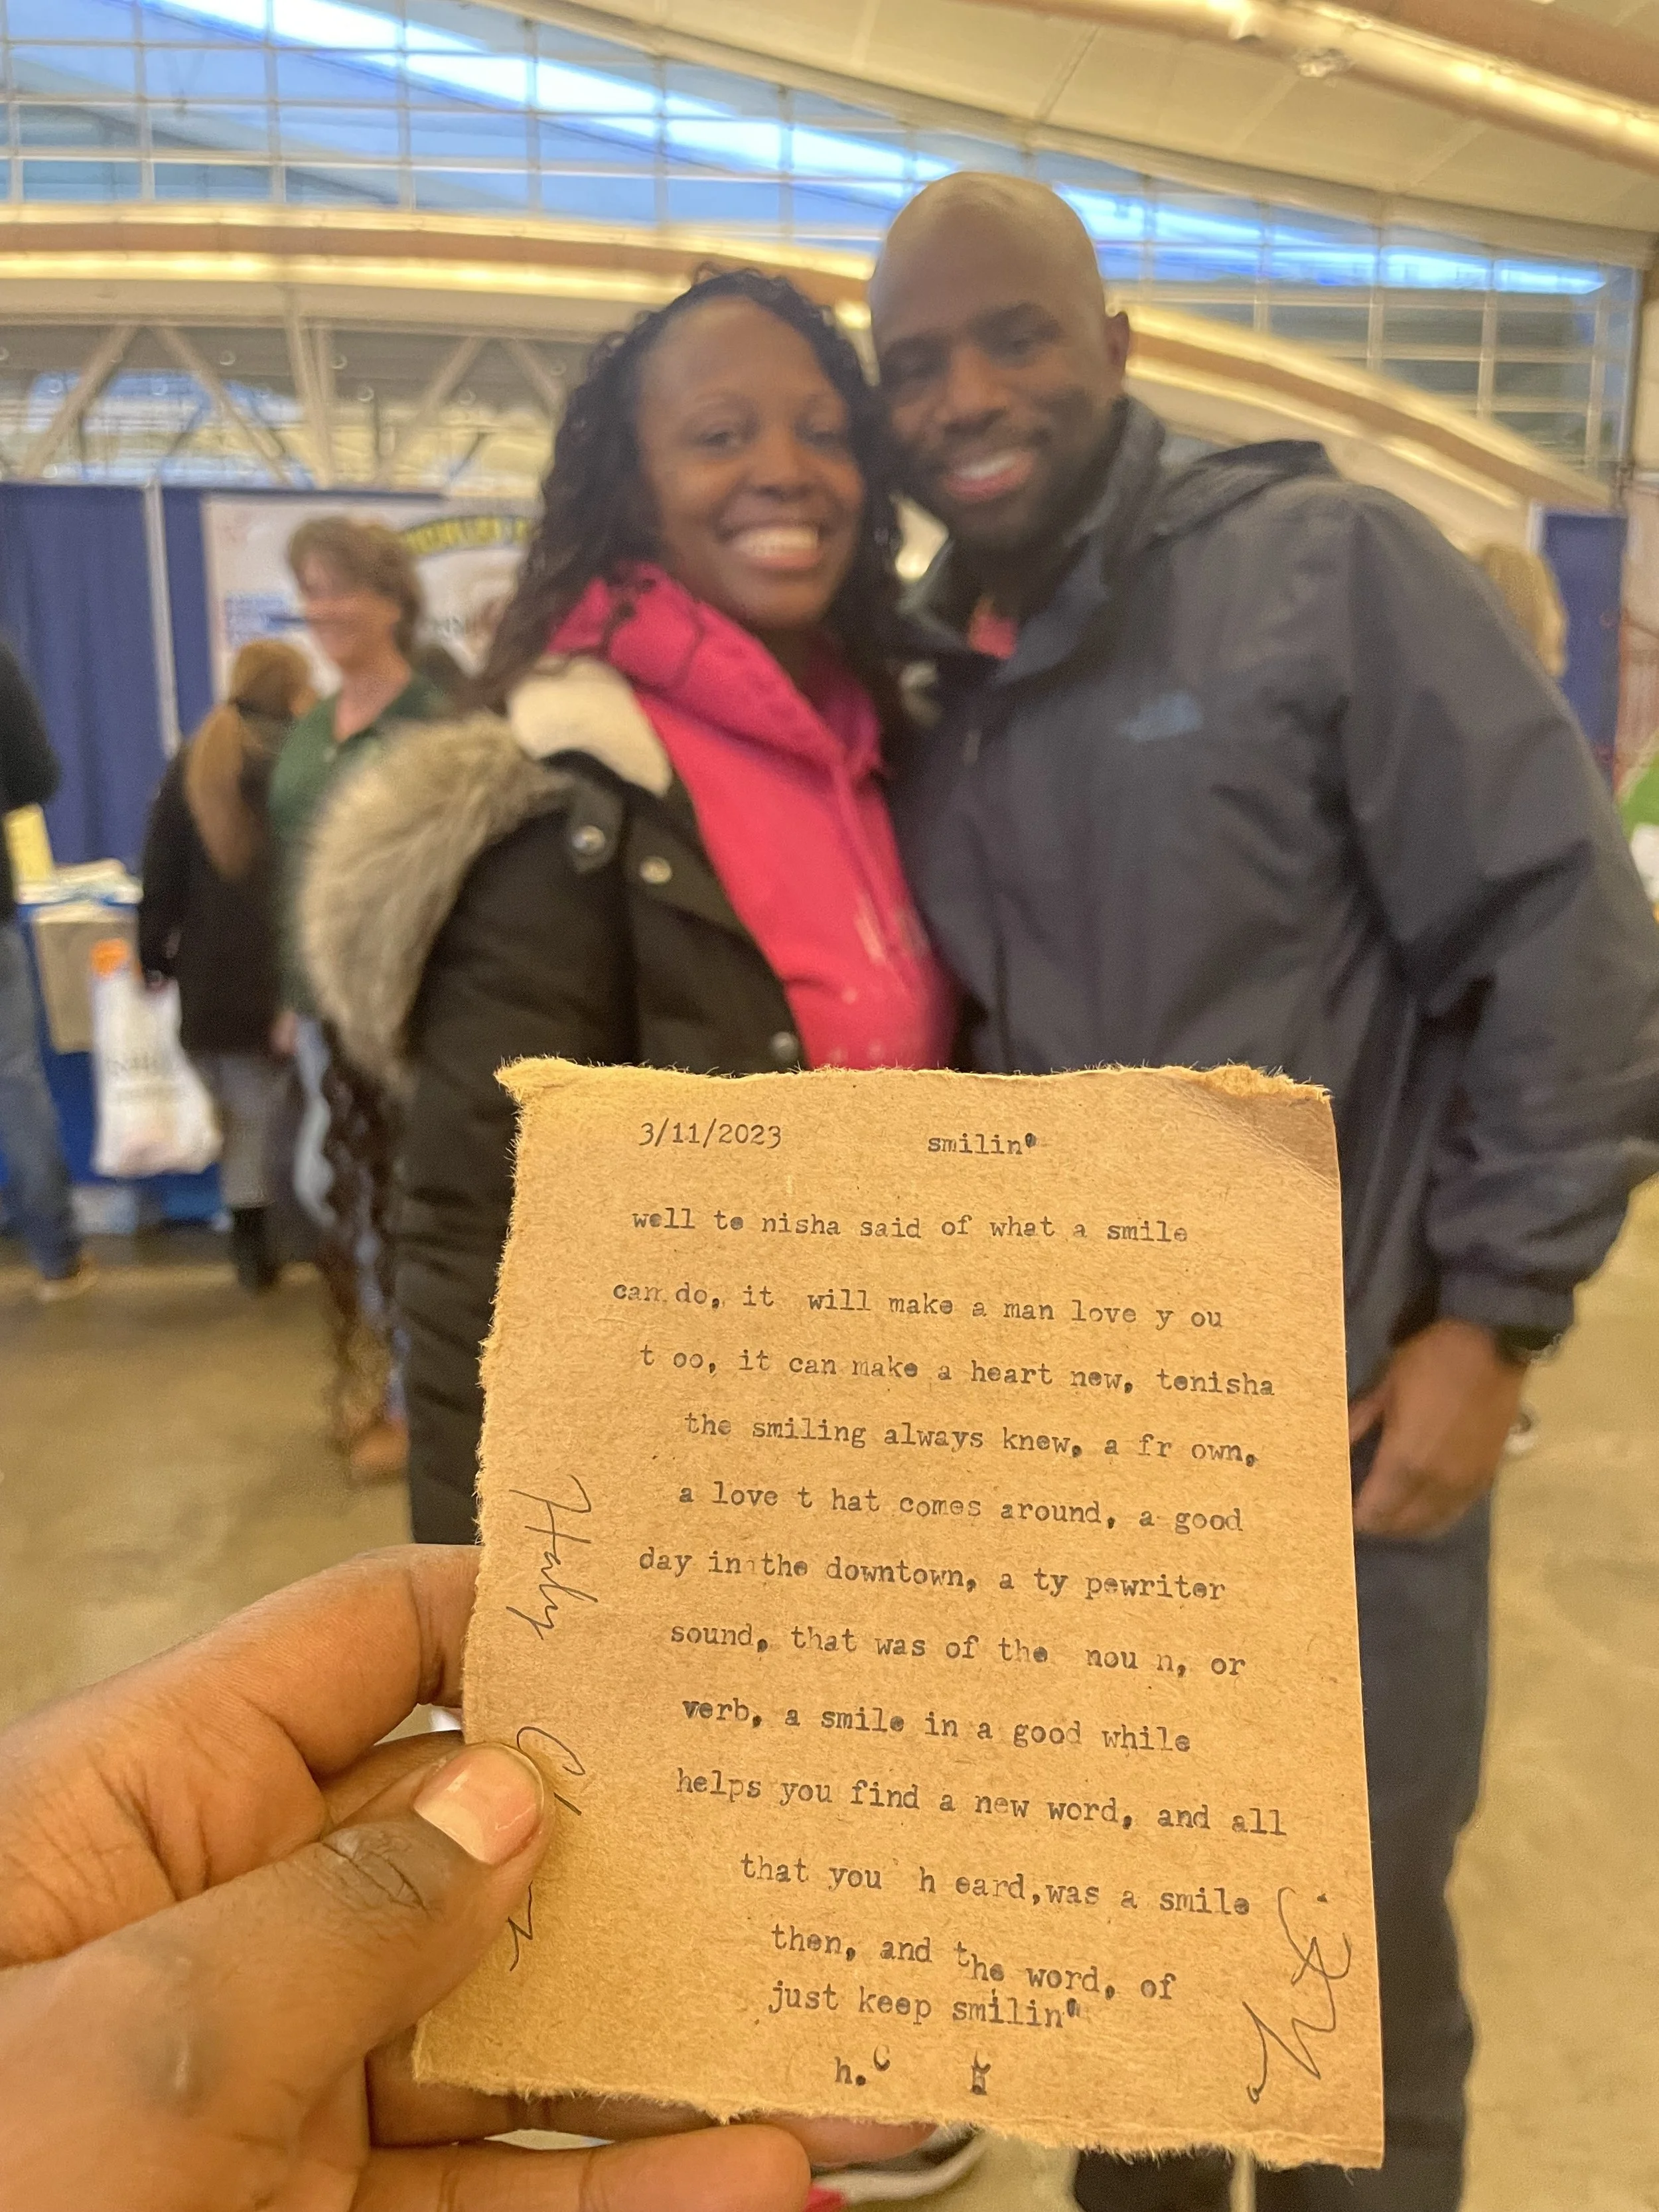 3/11/2023 smilin'
well te nisha said of what a smile
can do, it will make a man love y ou
t oo, it can make a heart new, tenisha
the smiling always knew, a fr own,
a love t hat comes around, a good
day in the downtown, a ty pewriter
sound, that was of the nou n, or
verb, a smile in a good while
helps you find a new word, and all
that you h eard,was a smile
then, and the word, of
just keep smilin'
h.